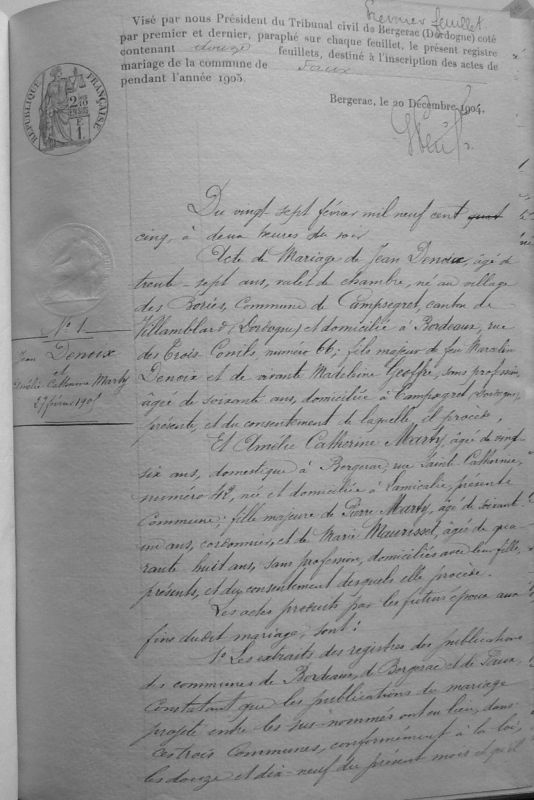 Premier feuillet.
Visé par nous Président du Tribunal civil de Bergerac (Dordogne) coté
par premier et dernier, paraphé sur chaque feuillet, le présent registre
contenant douze feuillets, destiné à l'inscription des actes de
mariage de la commune de Faux
pendant l'année 1905.
Bergerac, le 20 Décembre 1904.
RÉPUBLIQUE FRANÇAISE
Du vingt-sept février mil neuf cent quat
cinq, à deux heures du soir
Acte de Mariage de Jean Denoix, âgé de
trente-sept ans, valet de chambre, né au village
des Bories, Commune de Campsegret, canton de
Villamblard (Dordogne) et domicilié à Bordeaux, rue
des Trois Conils, numéro 66; fils majeur de feu
Denoix et de vivante Madeleine Geoffre, sans profession,
âgée de soixante ans, domiciliée à Campsegret, Dordogne,
présente, et du consentement de laquelle il procède,
Et Amélie Catherine Marty, âgée de vingt
six ans, domestique à Bergerac, rue Sainte Catherine,
numéro 42, née et domiciliée à Lamicalie, présente
Commune; fille majeure de Pierre Marty, âgé de soixante
un ans, cordonnier, et de Marie Maurisset, âgée de qua
rante huit ans, sans profession, domiciliés avec leur fille,
présents, et du consentement desquels elle procède.
Les actes produits par les futurs époux aux
fins du dit mariage, sont:
1º Les extraits des registres des publications
des communes de Bordeaux, de Bergerac et de Faux,
Constatant que les publications du mariage
projeté entre les sus-nommés ont eu lieu, dans
ces trois Communes, conformément à la loi,
les douze et dix-neuf du présent mois et qu'il
Nº 1
Jean Denoix
et
Amélie Catherine Marty
27 février 1905